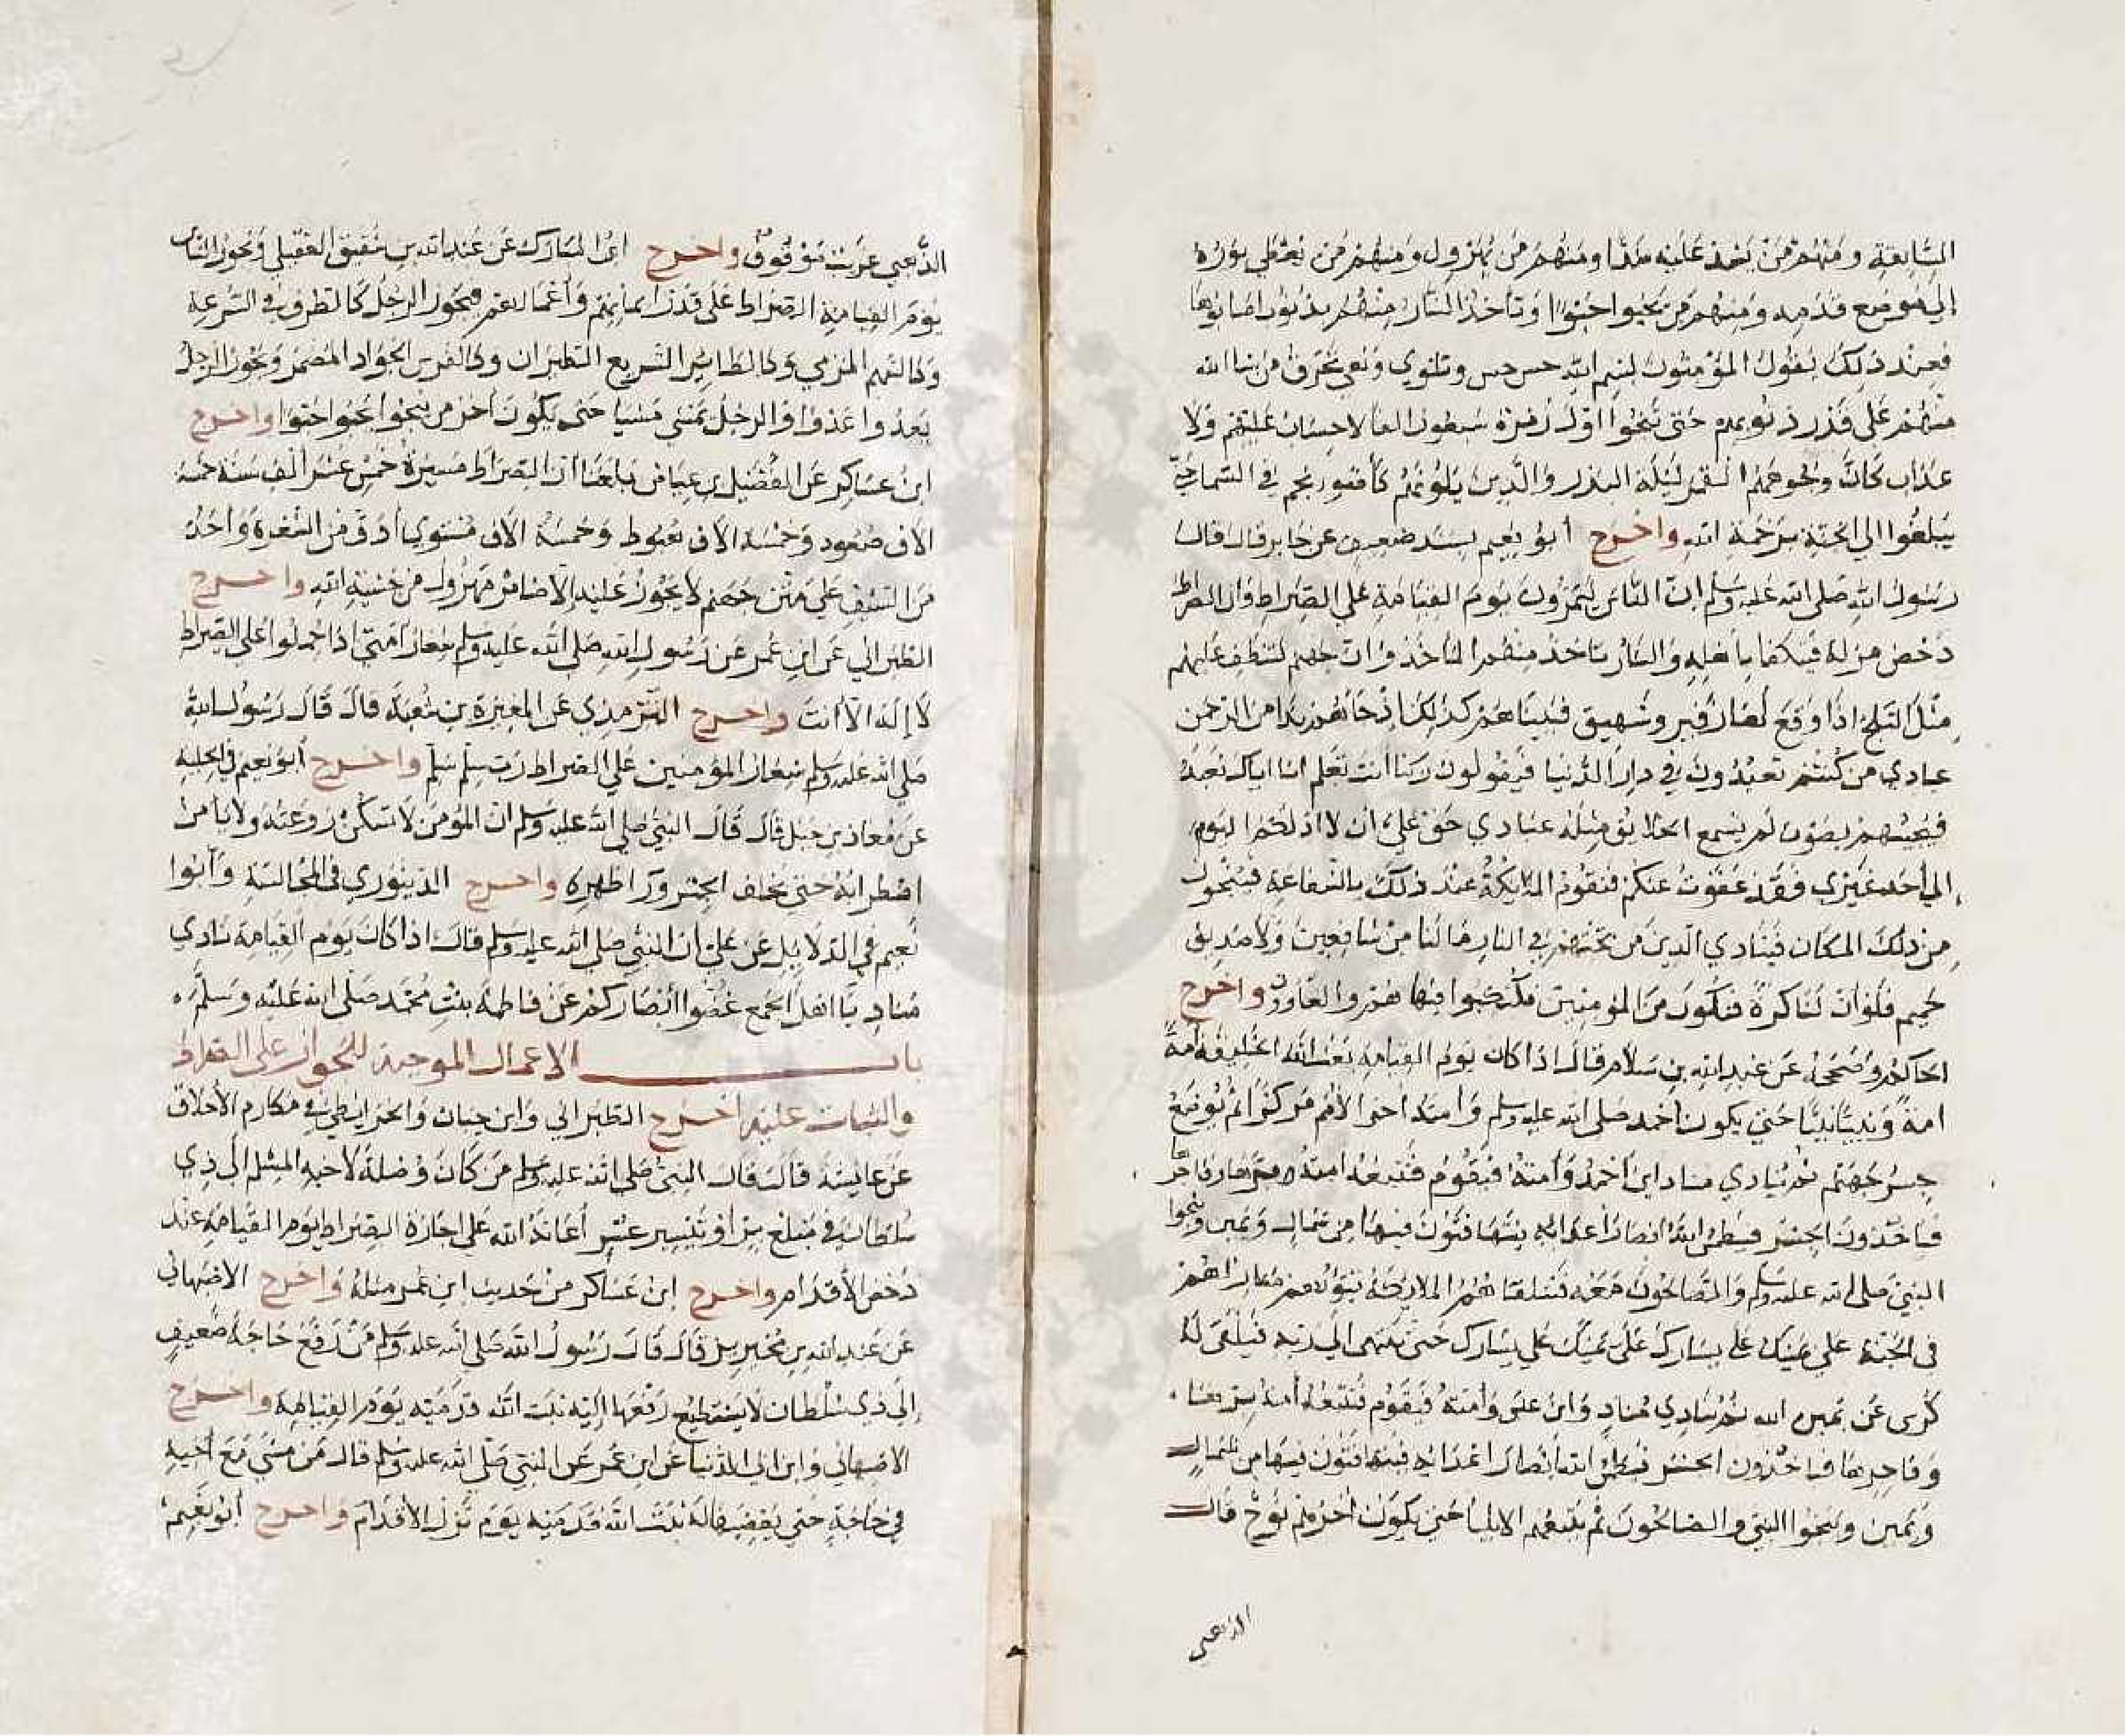 السابقة ومنهم من يشد عليه شدا ومنهم من يهرول ومنهم من يعطى نوره
الى موضع قدمه ومنهم من يحبوا حبوا وتاخذ النار منهم بذنوب اصابوها
فعند ذلك يقول المؤمنون بسم الله حس حس وتلتوي وهي تحرق من شا الله
منهم على قدر ذنوبهم حتى تنجوا اول زمرة سبعون الفا لا حساب عليهم ولا
عذاب كان وجوههم القمر ليلة البدر والذين يلونهم كأضوء نجم في السما حتى
يبلغوا الى الجنة برحمة الله واخرج أبو نعيم بسند ضعيف عن جابر قال قال
رسول الله صلى الله عليه وسلم ان الناس يمرون يوم القيامة على الصراط وان الصراط
دحض مزلة فيتكفا بأهله والنار تاخذ منهم المأخذ وان جهنم لتنطف عليهم
مثل الثلج اذا وقع لها زفير وشهيق فبينا هم كذلك اذ جاهم ندا من الرحمن
عبادي من كنتم تعبدون في دار الدنيا فيقولون ربنا انت تعلم انا اياك نعبد
فيجيبهم بصوت لم يسمع الخلايق مثله عبادي حق علي ان لا اكلكم اليوم
الى أحد غيري فقد عفوت عنكم فتقوم الملايكة عند ذلك بالشفاعة فينجون
من ذلك المكان فينادي الذين من تحتهم في النار ما لنا من شافعين ولا صديق
حميم فلو ان لنا كرة فنكون من المؤمنين فكبكبوا فيها هم والغاوون واخرج
الحاكم وصححه عن عبد الله بن سلام قال اذا كان يوم القيامة بعث الله الخليقة أمة
امة ونبيا نبيا حتى يكون أحمد صلى الله عليه وسلم وامته أخر الأمم مركزا ثم يوضع
جسر جهنم ثم ينادي مناد اين أحمد وأمته فيقوم فتتبعه امته برها وفاجرها
فياخذون الجسر فيطمس الله ابصار أعدايه فيتهافتون فيها من شمال ويمين وينجوا
النبي صلى الله عليه وسلم والصالحون معه فتتلقاهم الملايكة تبوؤهم منازلهم
في الجنة على يمينك على يسارك على يمينك على يسارك حتى ينتهى الى ربه فيلقى له
كرسى عن يمين الله ثم ينادي مناد اين عيسى وأمته فيقوم فتتبعه أمته برها
وفاجرها فياخذون الجسر فيطمس الله أبصار اعدايه فيتهافتون فيها من شمال
ويمين وينجوا النبي والصالحون ثم يتبعهم الانبيا حتى يكون أخرهم نوح قال
الذهبي
الذهبي غريب موقوف واخرج ابن المبارك عن عبد الله بن شقيق العقيلي ويجوز الناس
يوم القيامة الصراط على قدر ايمانهم وأعمالهم فيجوز الرجل كالطرف في السرعة
وكالسهم المرمي وكالطاير السريع الطيران وكالفرس الجواد المضمر ويجوز الرجل
يعدوا عدوا والرجل يمشي مشيا حتى يكون أخر من ينجوا يحبوا حبوا واخرج
ابن عساكر عن الفضيل بن عياض بلغنا أن الصراط مسيرة خمس عشر ألف سنة خمسة
الاف صعود وخمسة الاف هبوط وخمسة الاف مستوي أدق من الشعرة وأحد
من السيف على متن جهنم لا يجوز عليه إلا ضامر مهزول من خشية الله واخرج
الطبراني عن ابن عمر عن رسول الله صلى الله عليه وسلم شعار أمتي اذا حملوا على الصراط
لا إله الا أنت واخرج الترمذي عن المغيرة بن شعبة قال قال رسول الله
صلى الله عليه وسلم شعار المؤمنين على الصراط رب سلم سلم واخرج أبو نعيم في الحلية
عن معاذ بن جبل قال قال النبي صلى الله عليه وسلم ان المؤمن لا تسكن روعته ولا يأمن
اضطرابه حتى يخلف الجسر ورا ظهره واخرج الدينوري في المجالسة وأبوا
نعيم في الدلايل عن علي ان النبي صلى الله عليه وسلم قال اذا كان يوم القيامة نادي
مناد يا اهل الجمع غضوا أبصاركم عن فاطمة بنت محمد صلى الله عليه وسلم
باب الاعمال الموجبة للجواز على الصراط
والثبات عليه اخرج الطبراني وابن حبان والخرايطي في مكارم الأخلاق
عن عايشة قالت قال النبي صلى الله عليه وسلم من كان وصلة لأخيه المسلم الى ذي
سلطان في مبلغ بر أو تيسير عسر أعانه الله على اجازة الصراط يوم القيامة عند
دحض الأقدام واخرج ابن عساكر من حديث ابن عمر مثله واخرج الاصبهاني
عن عبد الله بن محيريز قال قال رسول الله صلى الله عليه وسلم من رفع حاجة ضعيف
إلى ذي سلطان لا يستطيع رفعها إليه ثبت الله قدميه يوم القيامة واخرج
الاصبهاني وابن ابي الدنيا عن ابن عمر عن النبي صلى الله عليه وسلم قال من مشي مع أخيه
في حاجة حتى يقضيها له ثبت الله قدميه يوم تزل الأقدام واخرج أبو نعيم